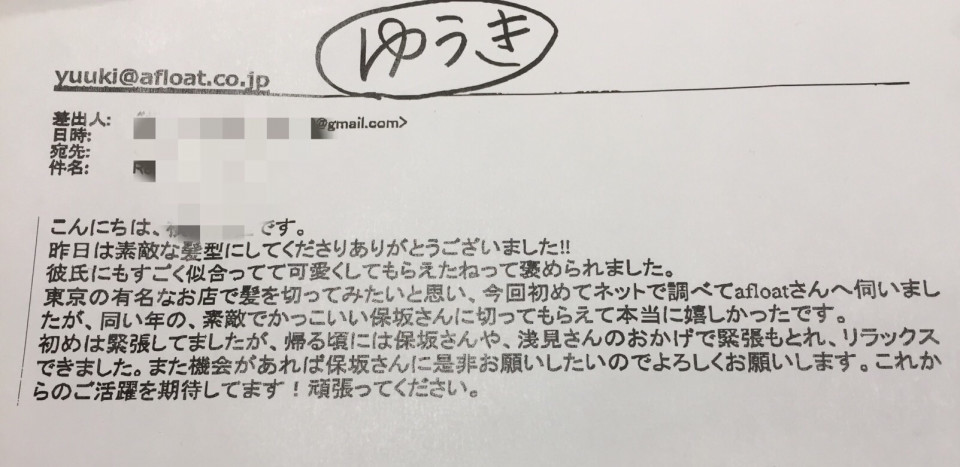 ゆうき
yuuki@afloat.co.jp
差出人: @gmail.com>
日時:
宛先:
件名:
こんにちは、 です。
昨日は素敵な髪型にしてくださりありがとうございました!!
彼氏にもすごく似合ってて可愛くしてもらえたねって褒められました。
東京の有名なお店で髪を切ってみたいと思い、今回初めてネットで調べてafloatさんへ伺いまし
たが、同い年の、素敵でかっこいい保坂さんに切ってもらえて本当に嬉しかったです。
初めは緊張してましたが、帰る頃には保坂さんや、浅見さんのおかげで緊張もとれ、リラックス
できました。また機会があれば保坂さんに是非お願いしたいのでよろしくお願いします。これか
らのご活躍を期待してます！頑張ってください。